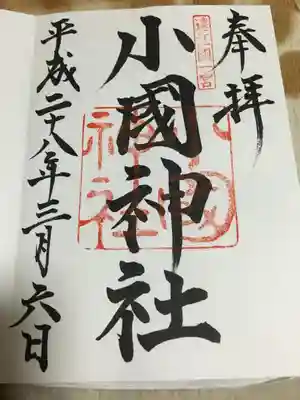 奉拝
遠江國一宮
小國神社
平成二十八年三月六日